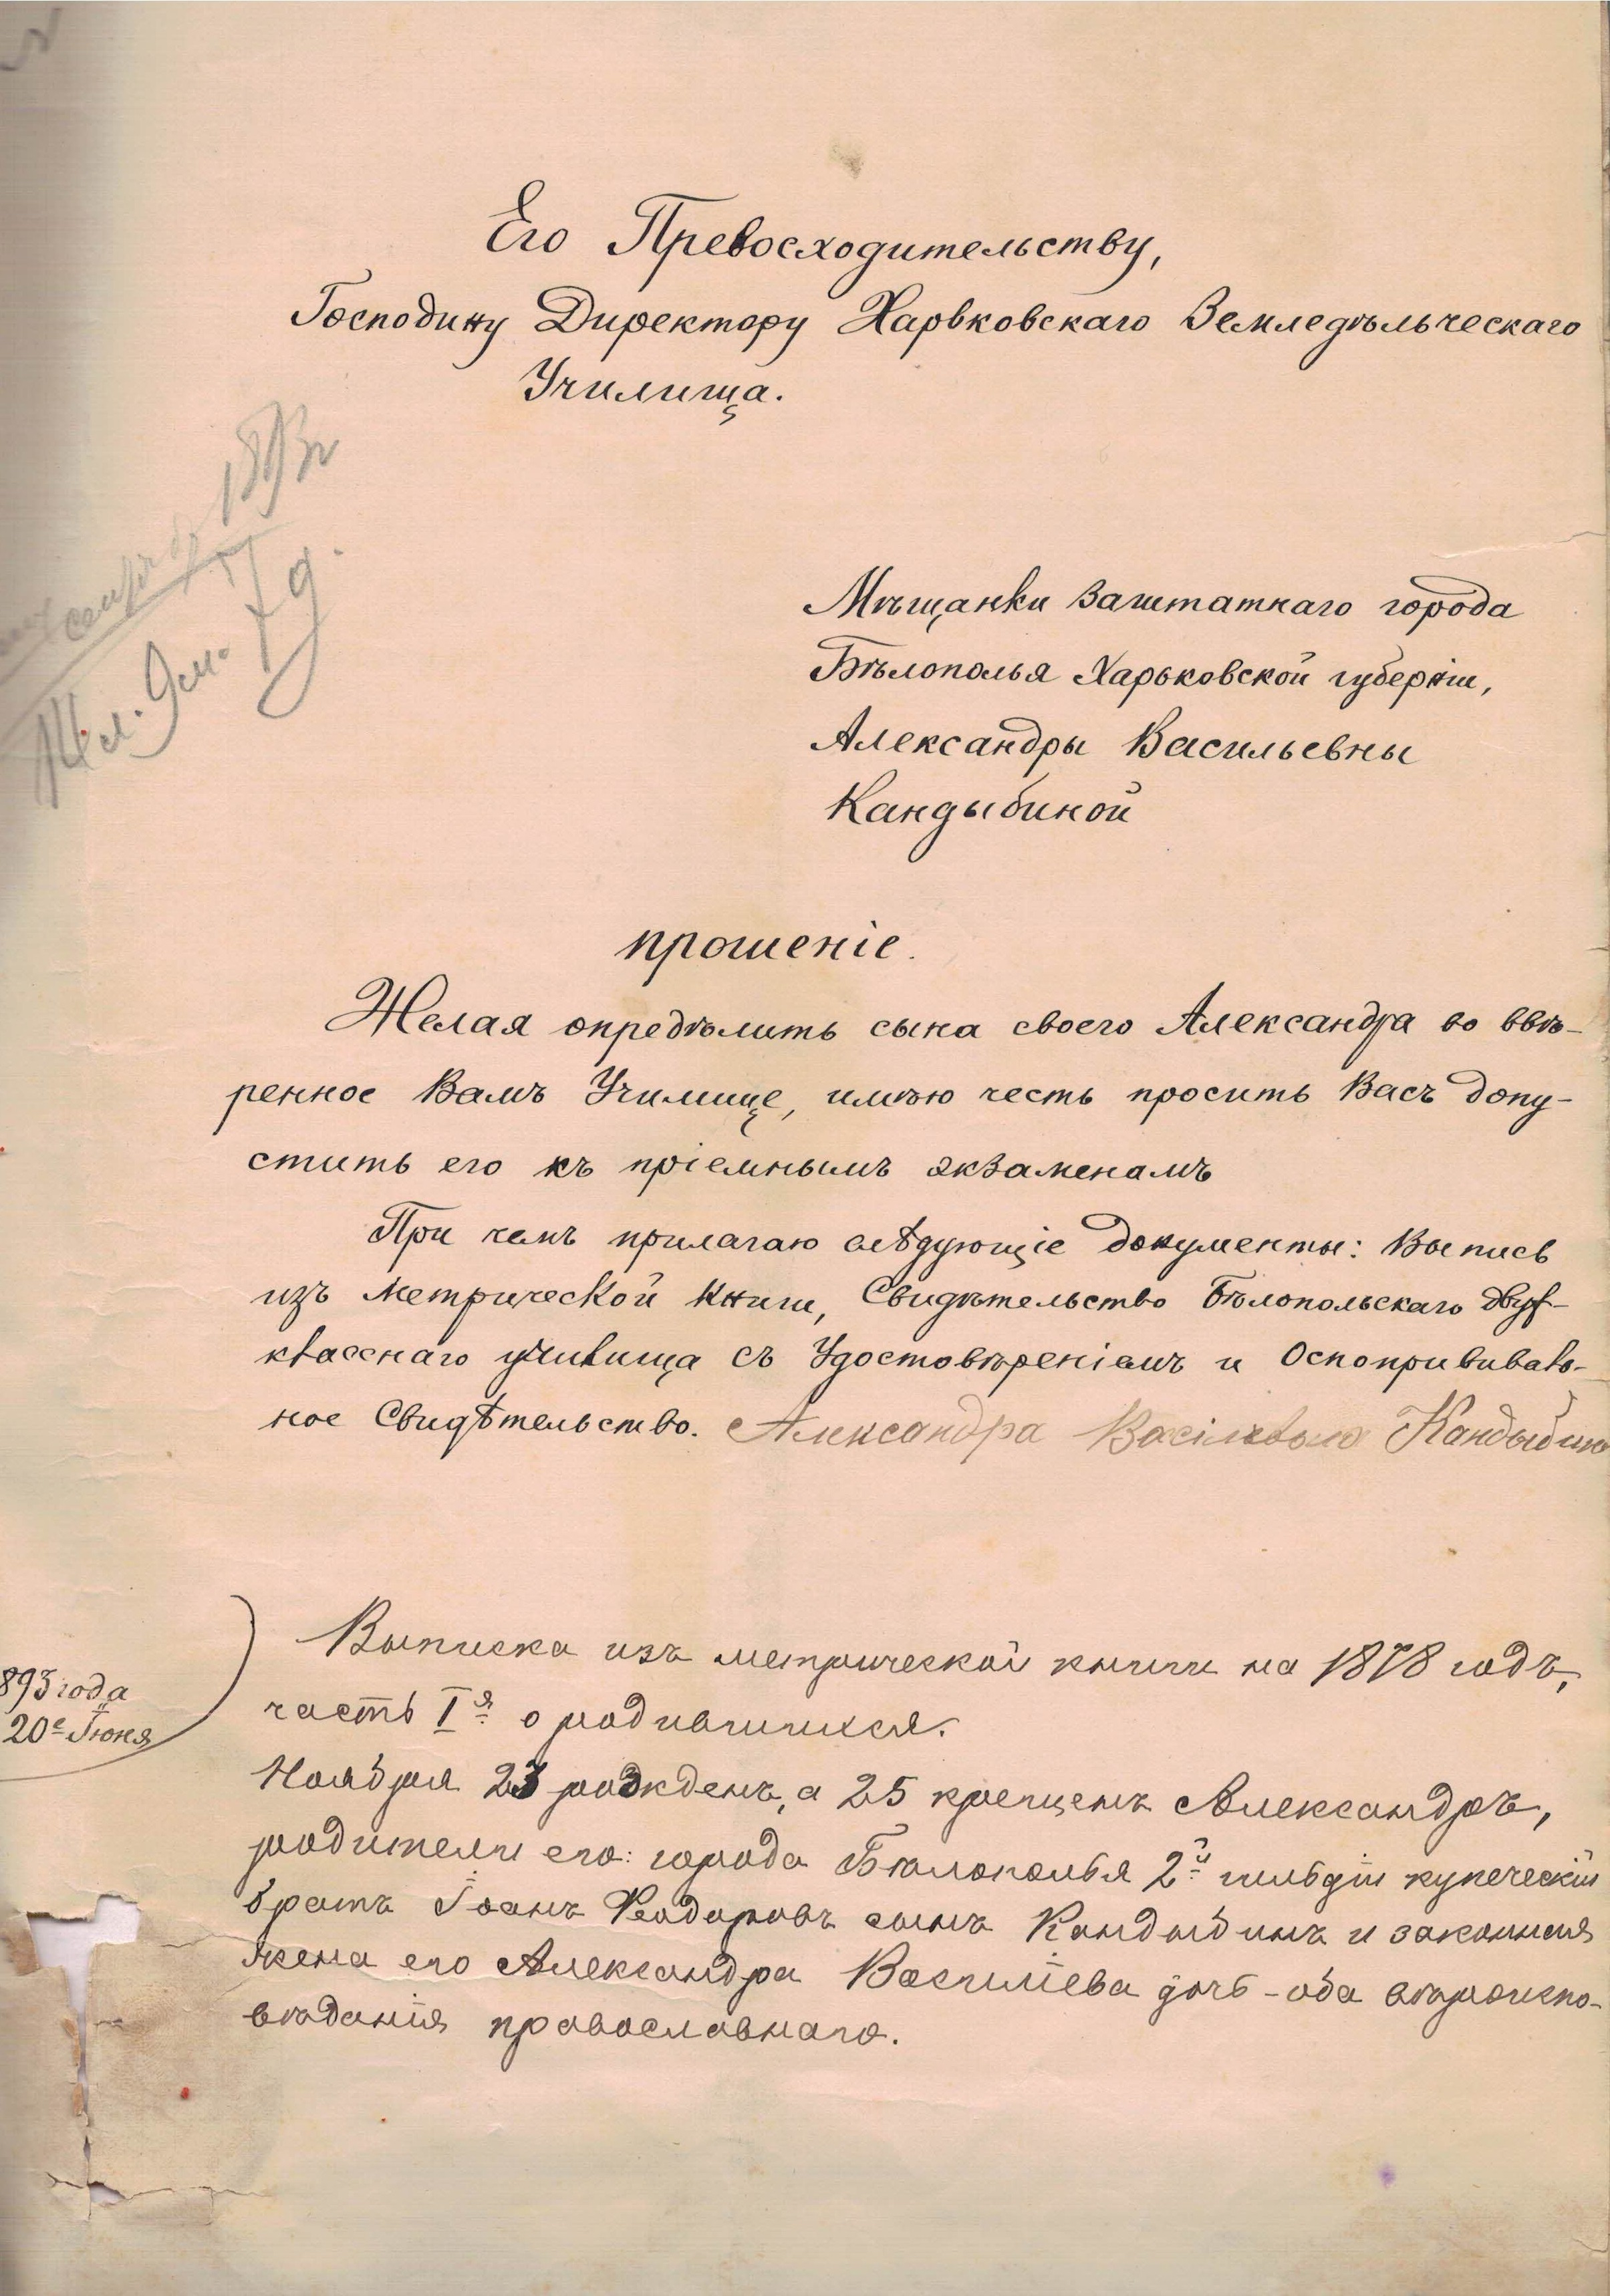 Его Превосходительству,
Господину Директору Харьковскаго Земледѣльческаго
Училища.
1893 г.
Мѣщанки Заштатнаго города
Бѣлополья Харьковской губерніи,
Александры Васильевны
Кандыбиной
прошеніе.
Желая опредѣлить сына своего Александра во ввѣ-
ренное Вамъ Училище, имѣю честь просить Васъ допу-
стить его къ пріемнымъ экзаменамъ
При чемъ прилагаю слѣдующіе документы: Выпись
изъ Метрической Книги, Свидѣтельство Бѣлопольскаго двух-
класснаго училища съ Удостовѣреніемъ и Оспопрививатель-
ное Свидѣтельство. Александра Кандыбина
Выписка изъ метрической книги на 1878 годъ,
893 года
часть Iя о родившихся.
20е Іюня
Ноября 23 рожденъ, а 25 крещенъ Александръ,
родители его: города Бѣлополья 2й гильдіи купеческій
братъ Іоанъ Феодоровъ сынъ Кандыбинъ и законная
жена его Александра Василіева дочь - оба вѣроиспо-
вѣданія православнаго.